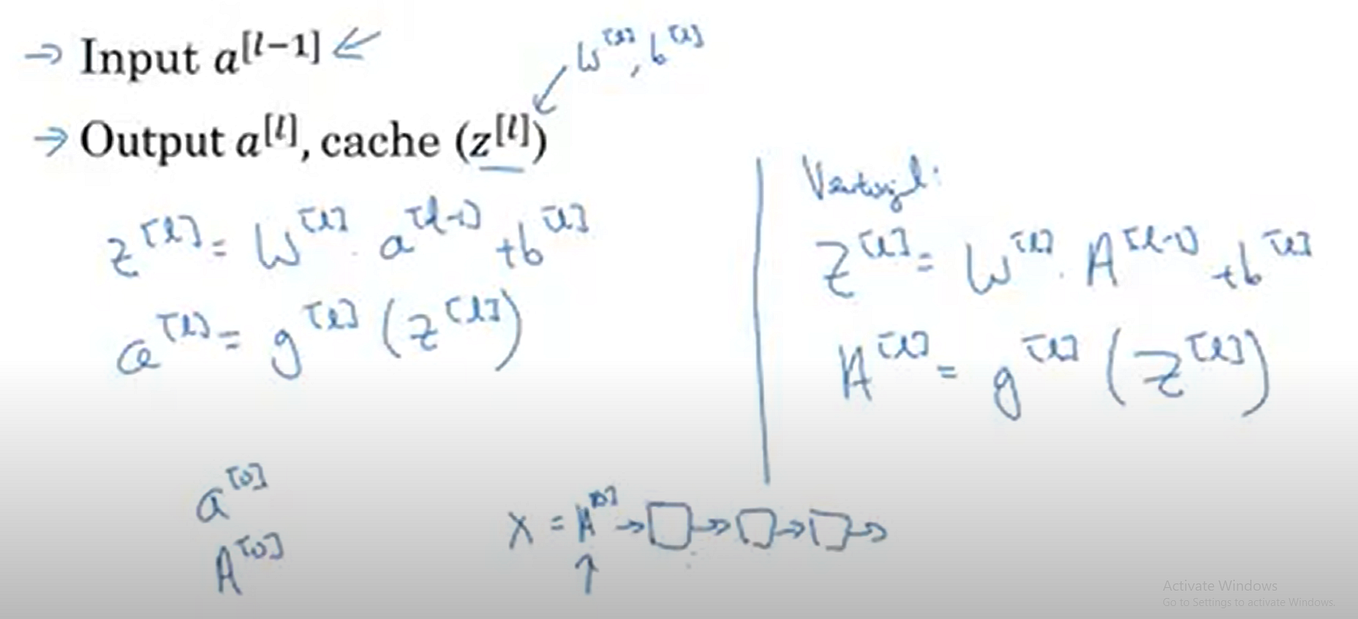 → Input a^[l-1] ←
W^[l], b^[l]
→ Output a^[l], cache (z^[l])
z^[l] = W^[l] · a^[l-1] + b^[l]
a^[l] = g^[l] (z^[l])
Vectorized:
Z^[l] = W^[l] · A^[l-1] + b^[l]
A^[l] = g^[l] (Z^[l])
a^[0]
A^[0]
X = A^[0] → □ → □ → □ →
↑
Activate Windows
Go to Settings to activate Windows.